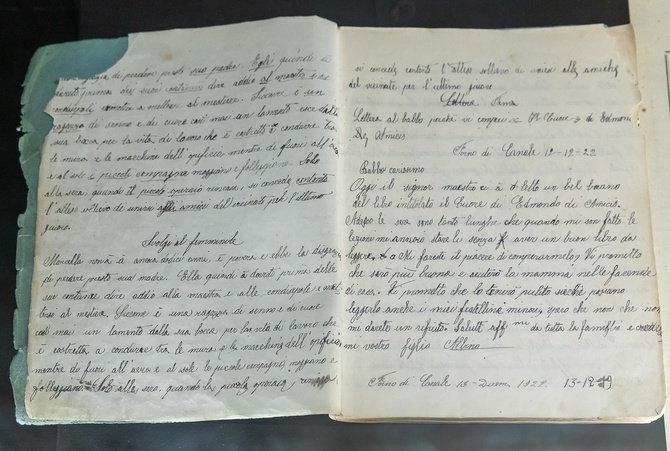 di perdere presto suo padre. Egli quindi a
dovuto prima dire addio al maestro e ai
compagni a mettersi al mestiere. Siccome è un
ragazzo di senno e di cuore così mai un lamento esce dalla
sua bocca per la vita di lavoro che è costretto a condurre tra
le mura e le macchine dell'opificio, mentre di fuori all'aria
e al sole i piccoli compagni mezzano e folleggiano. Solo
alla sera, quando il piccolo operaio rincasa, si concede contento
l'altro sollievo di unirsi agli amici del vicinato per l'ultimo
giuoco.
Svolgo al femminile
Marcella non à ancora dodici anni, è povera e ebbe la disgrazia
di perdere presto sua madre. Ella quindi à dovuto prima delle
sue dire addio alla maestra e alle condiscepole e
al mestiere. Siccome è una ragazza di senno e di cuore
così mai un lamento dalla sua bocca per la vita di lavoro che
è costretta a condurre tra le mura e le macchine dell'opificio
mentre di fuori all'aria e al sole le piccole compagne mezzano e
folleggiano. Solo alla sera, quando la piccola operaia
si concede contenta l'altro sollievo di unirsi alle amiche
del vicinato per l'ultimo giuoco
Lettera
Lettera al babbo perché mi comperi il Cuore di Edmondo
De Amicis
Forno di Canale 12-12-22
Babbo carissimo
Oggi il signor maestro ci à letto un bel brano
del libro intitolato il Cuore di Edmondo de Amicis.
Adesso le sere sono tanto lunghe che quando mi son fatto le
lezioni mi annoio stare lì senza avere un buon libro da
leggere. Mi fareste il piacere di comperarmelo? Vi prometto
che sarò più buono e aiuterò la mamma nelle facende
di casa. Vi prometto che lo tenirò pulito perché possano
leggerlo anche i miei fratellini minori, spero che non
mi darete un rifiuto. Saluti aff.mi da tutta la famiglia e
mi vostro figlio Albino
Forno di Canale 1922 13-12